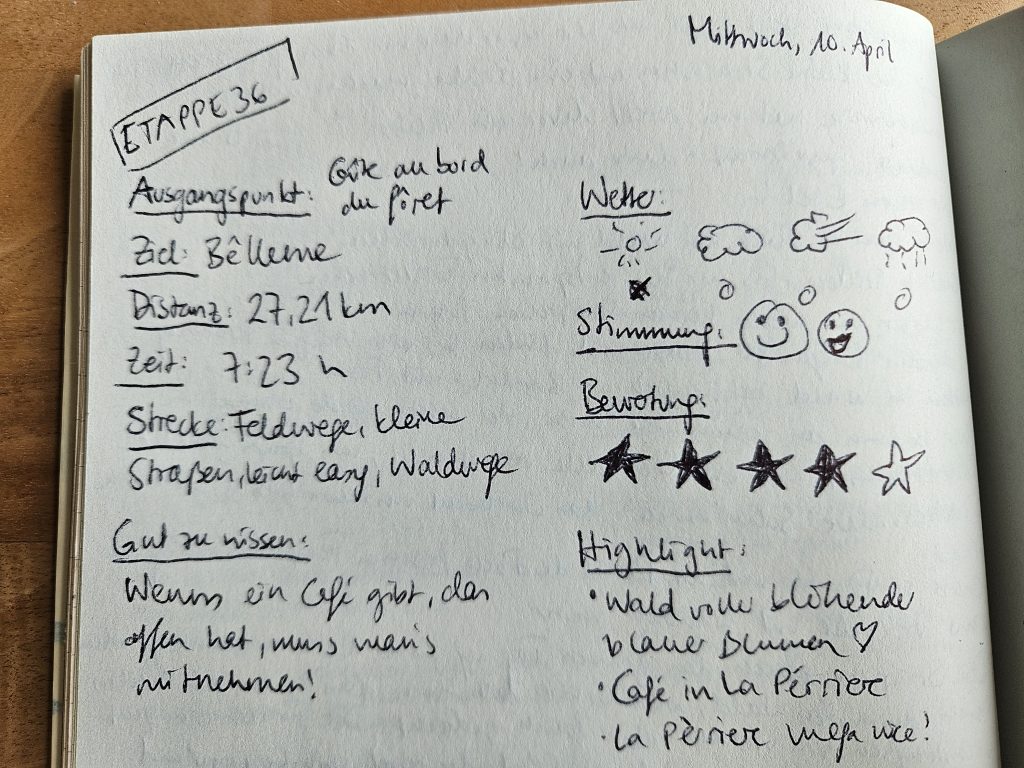 Mittwoch, 10. April
ETAPPE 36
Ausgangspunkt: Gîte au bord
du fôret
Ziel: Bêlleme
Distanz: 27,21 km
Zeit: 7:23 h
Strecke: Feldwege, kleine
Straßen, leicht easy, Waldwege
Gut zu wissen:
Wenns ein Café gibt, das
offen hat, muss man's
mitnehmen!
Wetter:
Stimmung:
Bewertung:
Highlight:
• Wald voller blühender
blauer Blumen ♡
• Café in La Pérriere
• La Pèrriere mega nice!